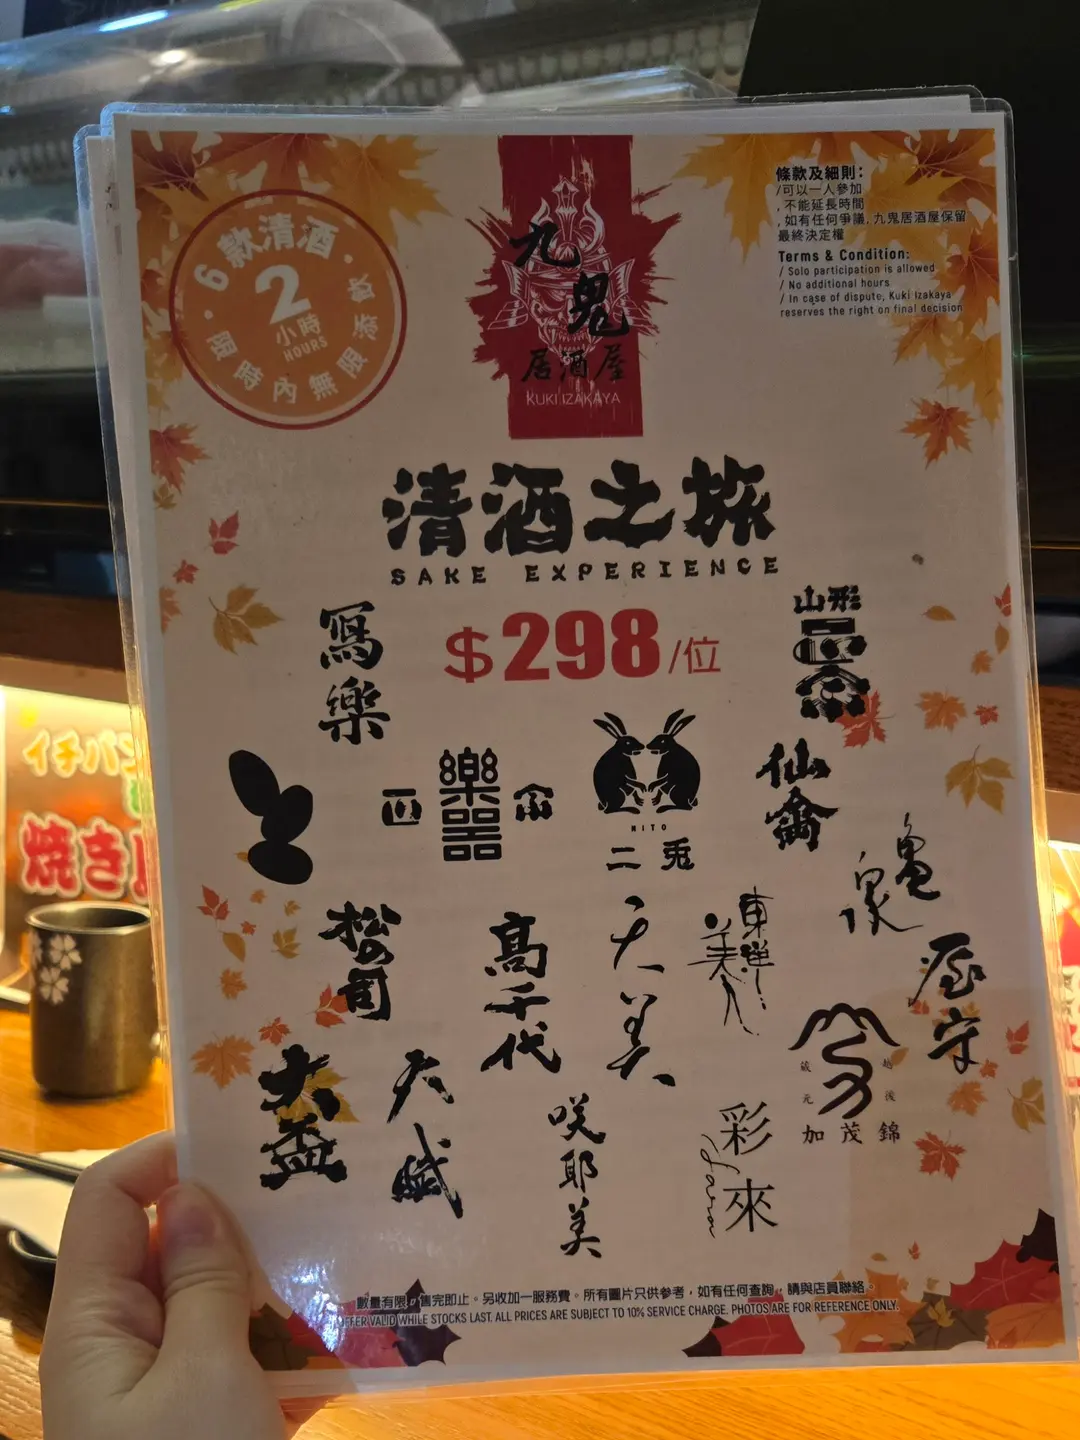 6款清酒
2
小時
HOURS
限時內無限添飲
九鬼
居酒屋
KUKI IZAKAYA
條款及細則：
/可以一人參加
, 不能延長時間
, 如有任何爭議, 九鬼居酒屋保留
最終決定權
Terms & Condition:
/ Solo participation is allowed
/ No additional hours
/ In case of dispute, Kuki Izakaya
reserves the right on final decision
清酒之旅
SAKE EXPERIENCE
$298/位
寫樂
山形
樂器
正
宗
NITO
二兎
仙禽
亀泉
松の司
高千代
天美
東洋美人
屋守
大盃
天賦
咲耶美
彩來
Sara
蔵元
越後
加茂錦
數量有限，售完即止。另收加一服務費。所有圖片只供參考，如有任何查詢，請與店員聯絡。
OFFER VALID WHILE STOCKS LAST. ALL PRICES ARE SUBJECT TO 10% SERVICE CHARGE. PHOTOS ARE FOR REFERENCE ONLY.
イチバン
焼き